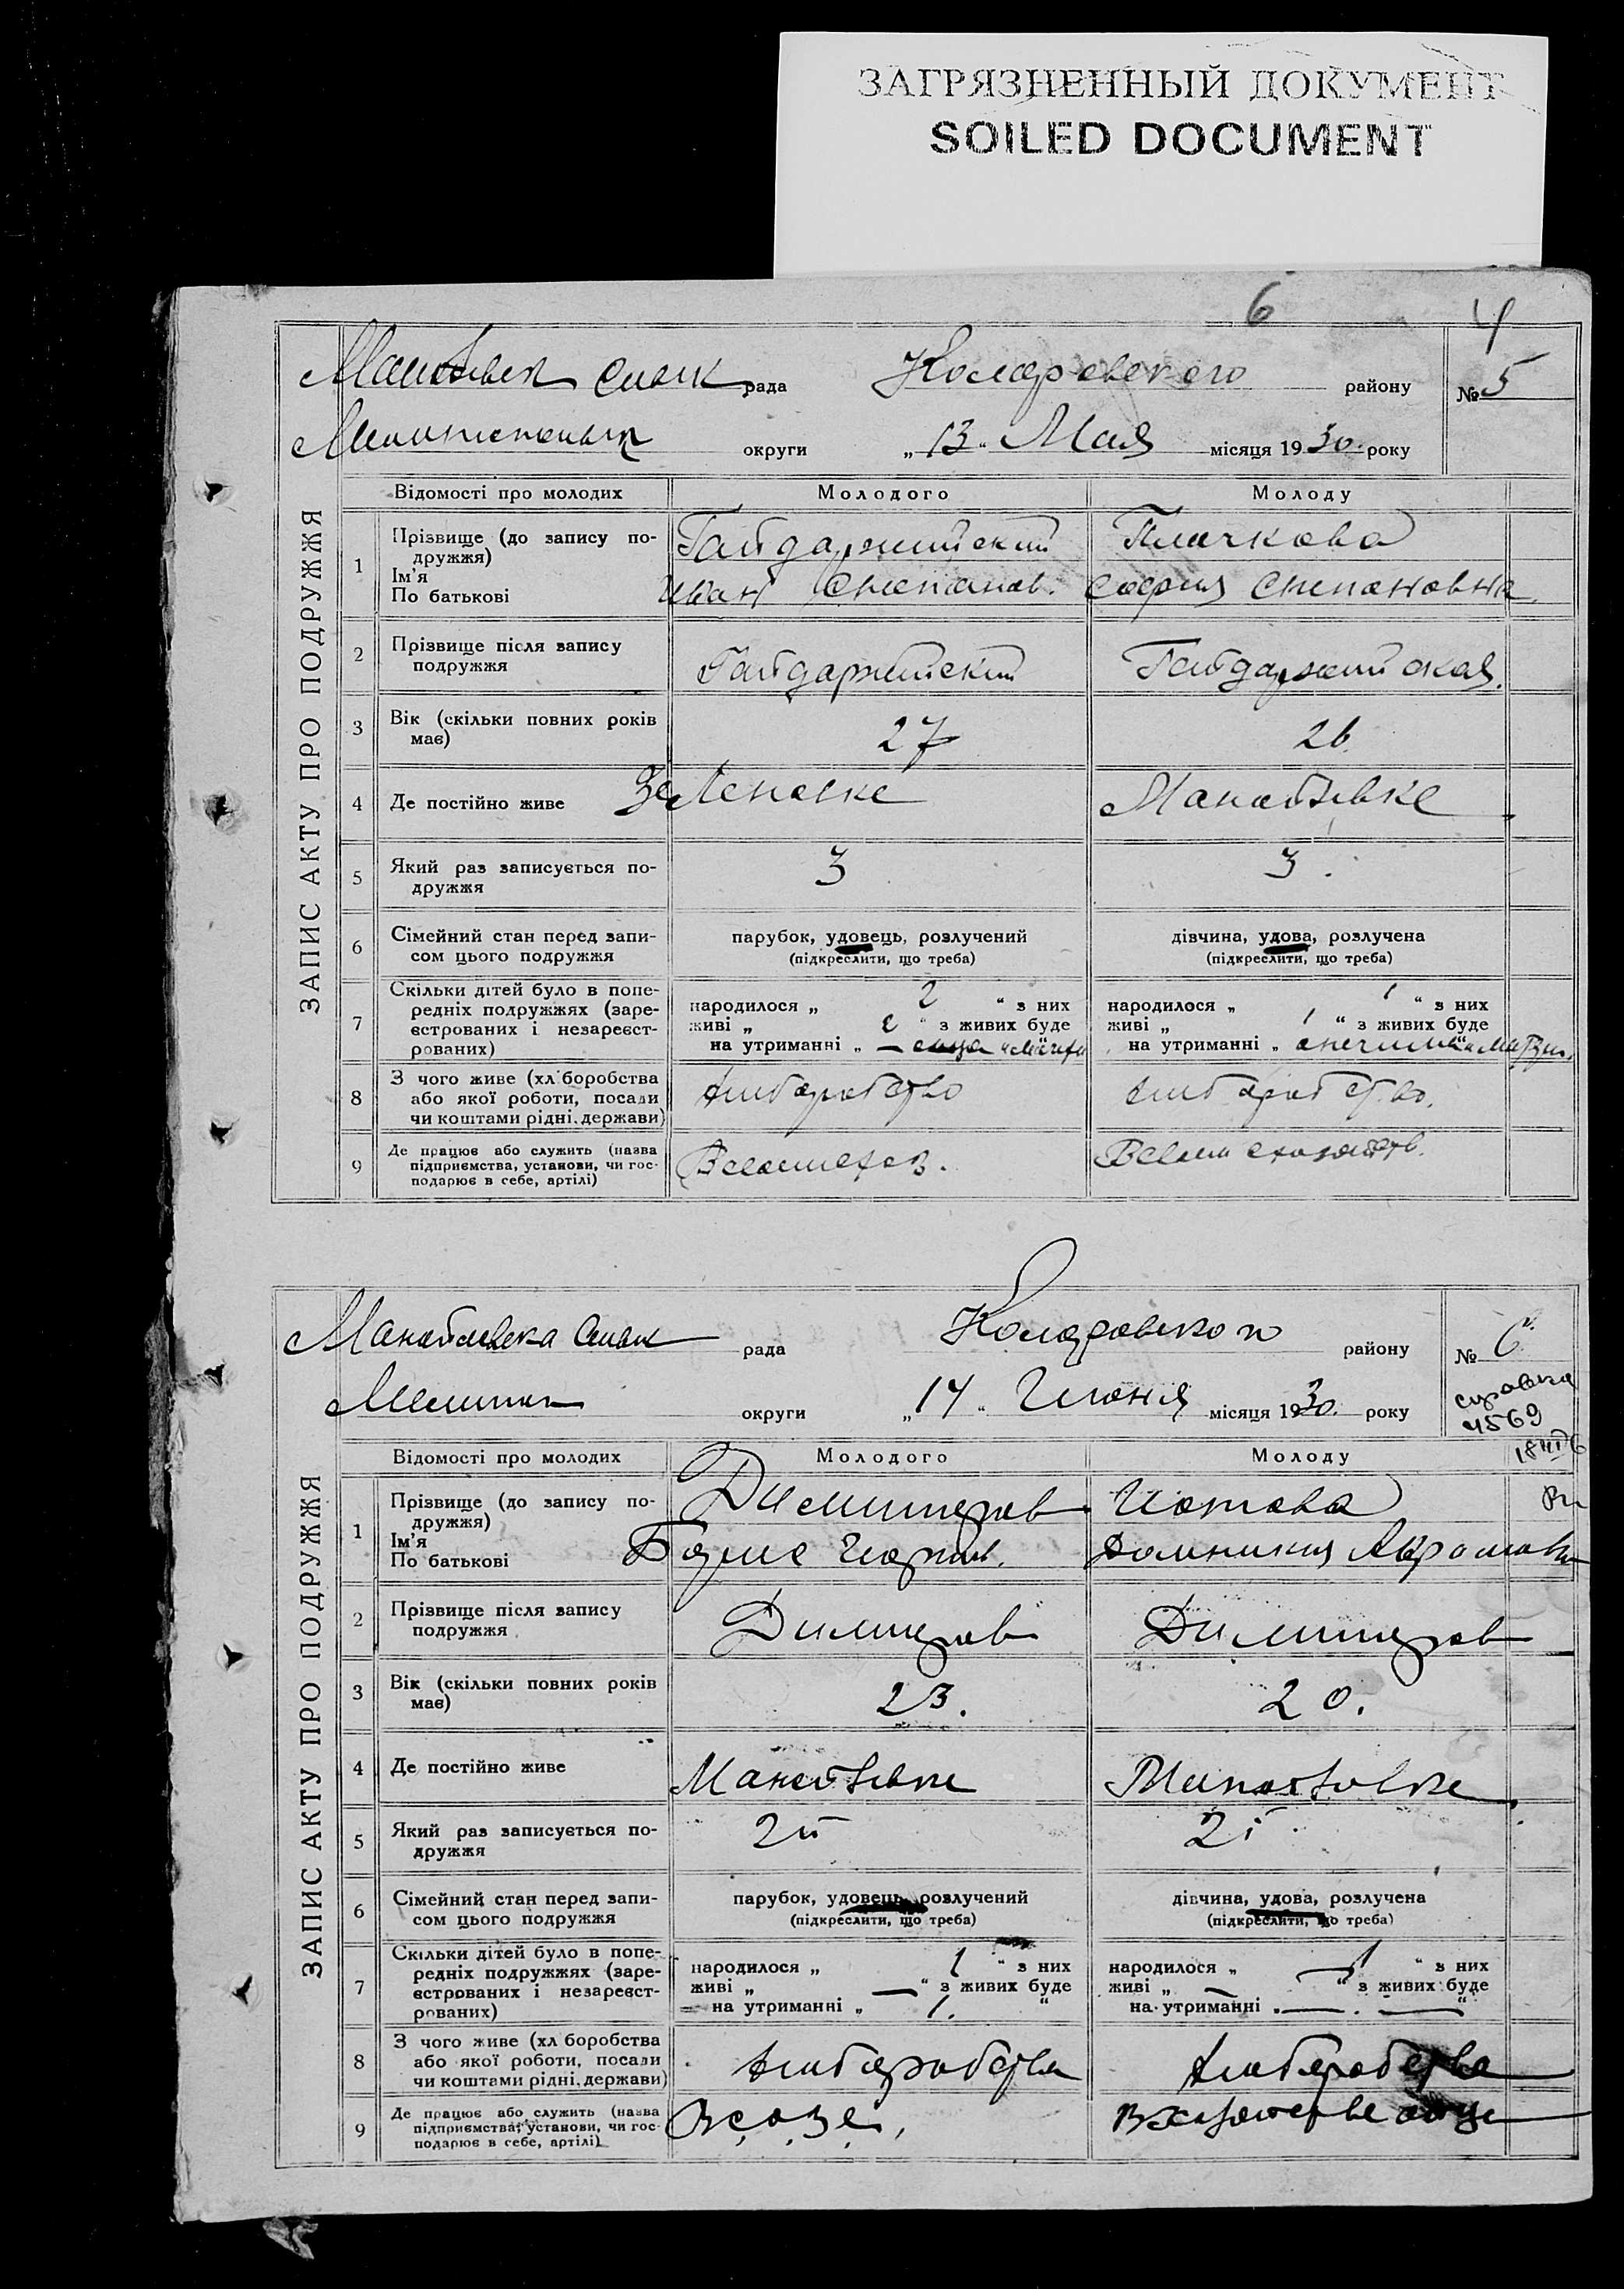 ЗАГРЯЗНЕННЫЙ ДОКУМЕНТ
SOILED DOCUMENT
6 4
ЗАПИС АКТУ ПРО ПОДРУЖЖЯ
рада Коларовского району № 5
округи „13“ Мая місяця 1930 року
Відомості про молодих Молодого Молоду
1 Прізвище (до запису по-
дружжя)
Ім'я
По батькові
Гайдаржийский Плачкова
Иван Степанов. София Степановна
2 Прізвище після запису
подружжя
Гайдаржийский Гайдаржийская
3 Вік (скільки повних років
має)
27 26
4 Де постійно живе Зеленовке Манойловке
5 Який раз записується по-
дружжя
3 3
6 Сімейний стан перед запи-
сом цього подружжя
парубок, удовець, розлучений дівчина, удова, розлучена
(підкреслити, що треба) (підкреслити, що треба)
7 Скільки дітей було в попе-
редніх подружжях (заре-
єстрованих і незареєст-
рованих)
народилося „ 2 “ з них народилося „ 1 “ з них
живі „ 2 “ з живих буде живі „ 1 “ з живих буде
на утриманні „ на утриманні „
8 З чого живе (хл боробства
або якої роботи, посади
чи коштами рідні, держави)
хлиборобство хлиборобство.
9 Де працює або служить (назва
підприємства, установи, чи гос-
подарює в себе, артілі)
ЗАПИС АКТУ ПРО ПОДРУЖЖЯ
рада Коларовского району № 6
округи „14“ Июня місяця 1930 року
справка
4569
Відомості про молодих Молодого Молоду
1 Прізвище (до запису по-
дружжя)
Ім'я
По батькові
Димитров Иотова
Борис Георгиев. Домникия
2 Прізвище після запису
подружжя
Димитров Димитров
3 Вік (скільки повних років
має)
23. 20.
4 Де постійно живе Манойловке Манойловке
5 Який раз записується по-
дружжя
2й 2й
6 Сімейний стан перед запи-
сом цього подружжя
парубок, удовець, розлучений дівчина, удова, розлучена
(підкреслити, що треба) (підкреслити, що треба)
7 Скільки дітей було в попе-
редніх подружжях (заре-
єстрованих і незареєст-
рованих)
народилося „ 1 “ з них народилося „ 1 “ з них
живі „ — “ з живих буде живі „ — “ з живих буде
на утриманні „ 1. “ на утриманні „ — “
8 З чого живе (хл боробства
або якої роботи, посади
чи коштами рідні, держави)
хлиборобства хлиборобства
9 Де працює або служить (назва
підприємства, установи, чи гос-
подарює в себе, артілі)